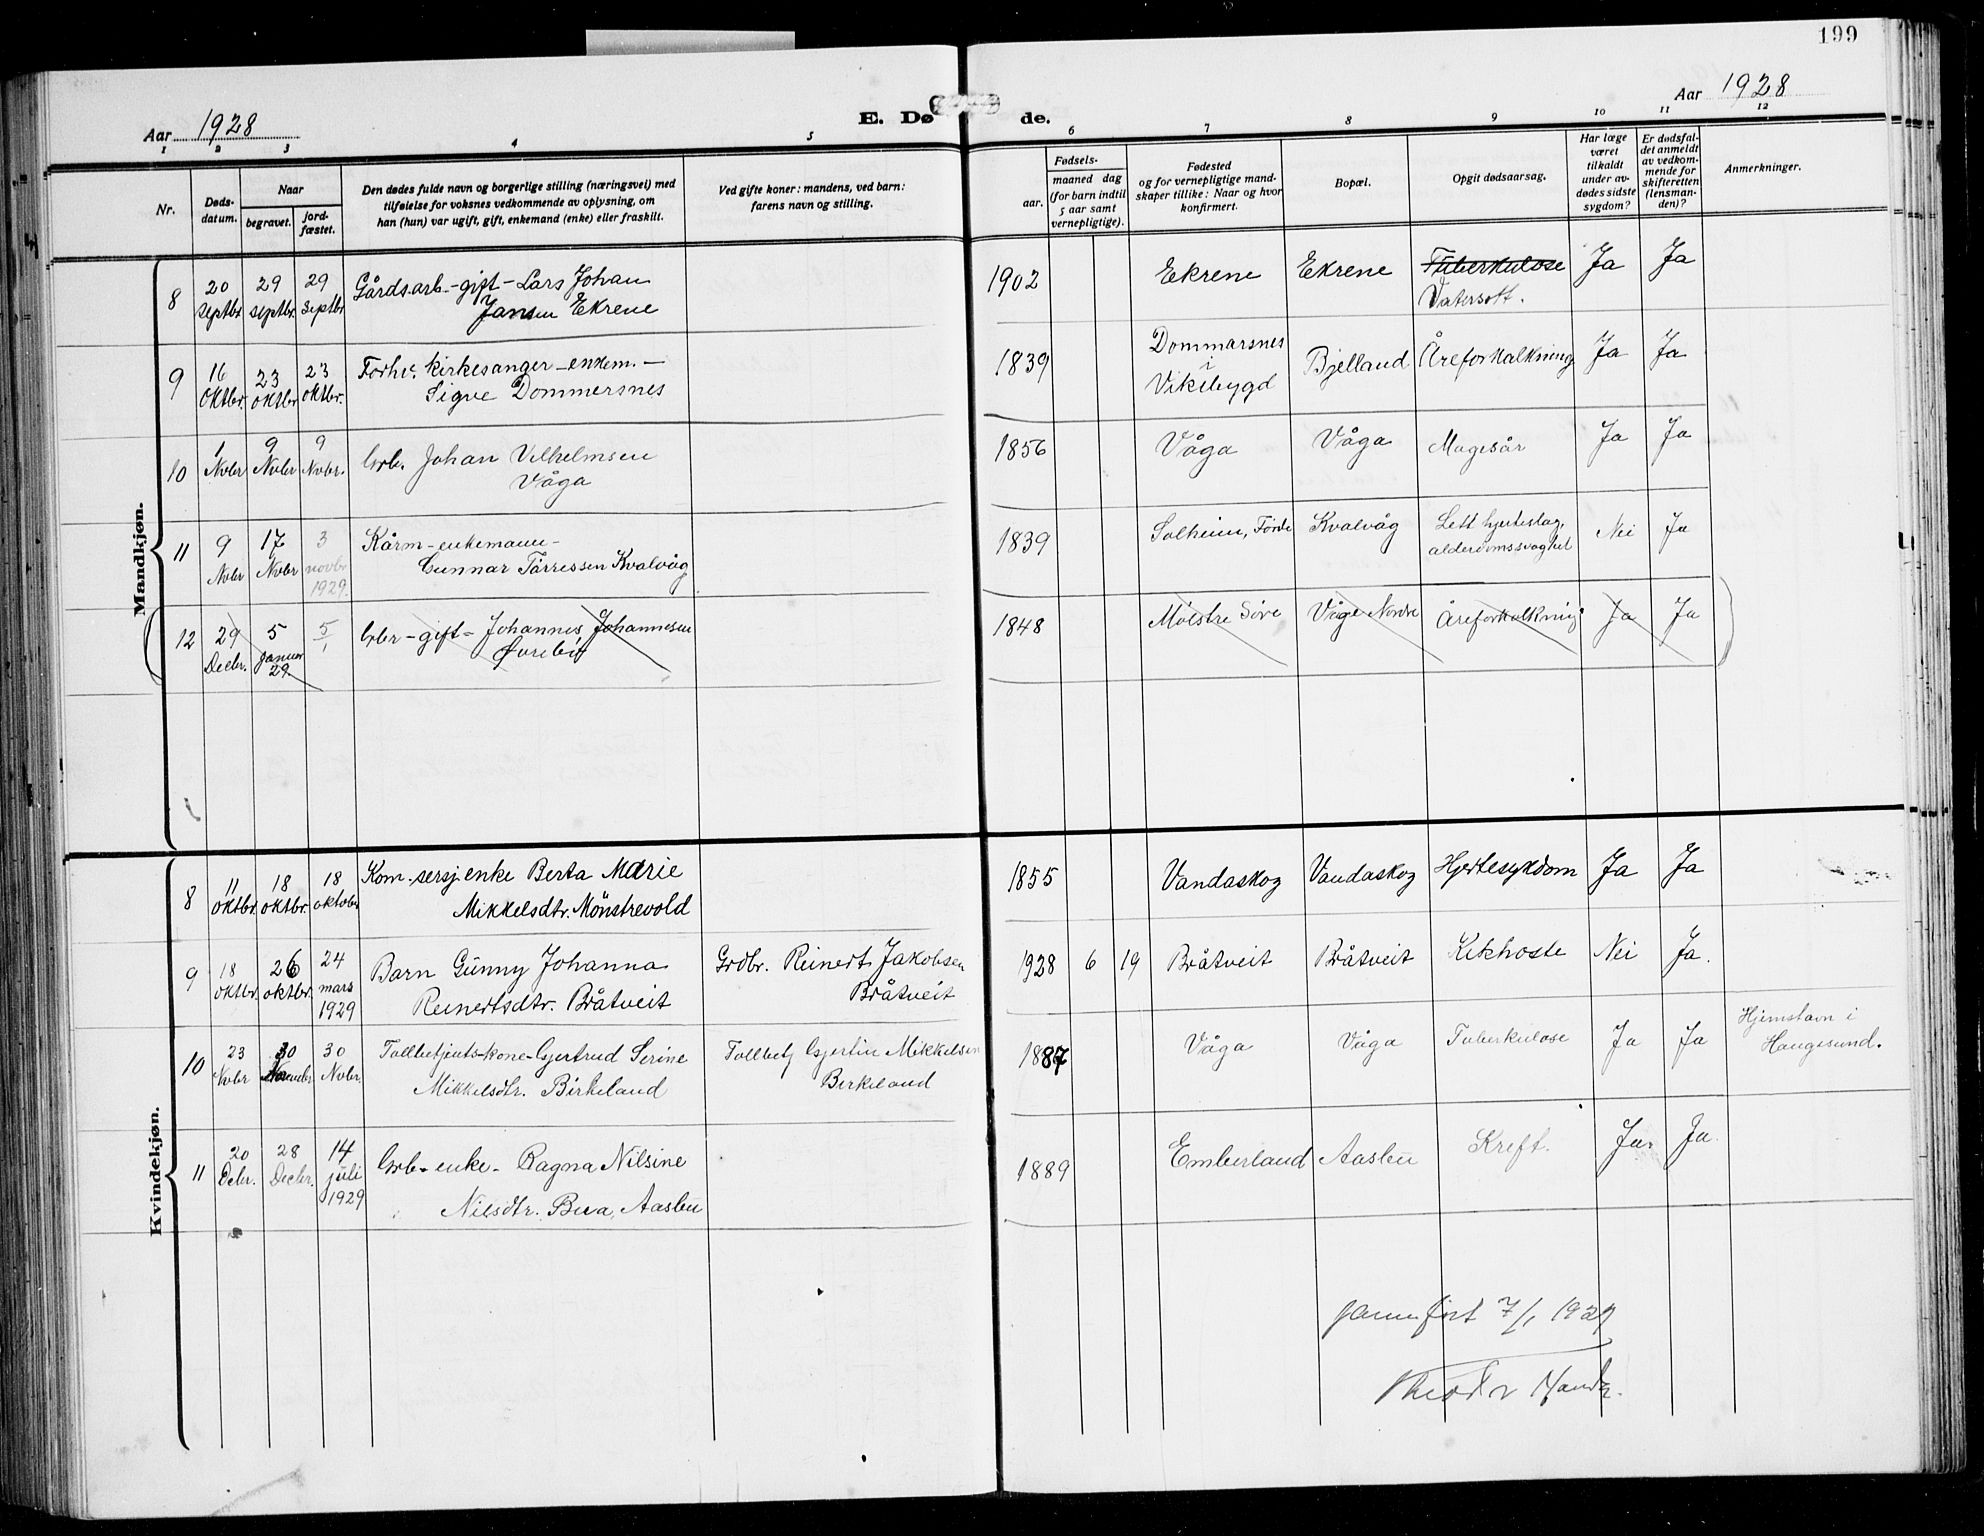 199
Aar 1928
E. Dø de.
Aar 1928
1 2 3 4 5 6 7 8 9 10 11 12
Nr.
Dødsdatum.
Naar
begravet.
jordfæstet.
Den dødes fulde navn og borgerlige stilling (næringsvei) med
tilføielse for voksnes vedkommende av oplysning, om
han (hun) var ugift, gift, enkemand (enke) eller fraskilt.
Ved gifte koner: mandens, ved barn:
farens navn og stilling.
Fødsels-
aar.
maaned dag
(for barn indtil
5 aar samt
vernepligtige).
Fødested
og for vernepligtige mand-
skaper tillike: Naar og hvor
konfirmert.
Bopæl.
Opgit dødsaarsag.
Har læge
været
tilkaldt
under av-
dødes sidste
sygdom?
Er dødsfal-
det anmeldt
av vedkom-
mende for
skifteretten
(lensman-
den)?
Anmerkninger.
Mandkjøn.
8 20 Septbr 29 septbr. 29 Septbr Gårdsarb. - gift - Lars Johan
Jansen Ekrene
1902 Ekrene Ekrene Tuberkulose
Vatersott. Ja Ja
9 16 Oktbr. 23 oktbr 23 oktbr. Forhv. kirkesanger - enkem. -
Sigve Dommersnes
1839 Dommarsnes
i
Vikebygd Bjelland Åreforkalkning Ja Ja
10 1 Nvbr 9 Nvbr 9 Nvbr. Grb. Johan Vilhelmsen
Våga
1856 Våga Våga Magesår Ja Ja
11 9 Nvbr 17 Nvbr 3 novbr 1929. Kårm - enkemann -
Gunnar Tørressen Kvalvåg
1839 Solheim, Förde Kvalvåg Lett hjerteslag,
alderdomssvaghet Nei Ja
12 29 Decbr. 5 Januar 29. 5/1 Gbr - gift - Johannes Johannesen
1848 Mølstre Søre Våge Nordre Åreforkalkning Ja Ja
Kvindekjøn.
8 11 oktbr. 18 oktbr. 18 oktobr Kom.sersj.enke Berta Marie
Mikkelsdtr. Mönstrevold
1855 Vandaskog Vandaskog Hjertesykdom Ja Ja
9 18 oktbr. 26 oktbr. 24 mars 1929 Barn Gunny Johanna
Reinertsdtr. Bråtveit
Grdbr. Reinert Jakobsen
Bråtveit
1928 6 19 Bråtveit Bråtveit Kikhoste Nei Ja.
10 23 Nvbr 30 November 30 Nvbr Tollbetjents-kone - Gjertrud Serine
Mikkelsdtr. Birkeland
Tollbetj Gjertin Mikkelsen
Birkeland
1887 Våga Våga Tuberkulose Ja Ja Hjemstavn i
Haugesund.
11 20 Decbr. 28 Decbr. 14 juli 1929 Grb - enke - Ragna Nilsine
Nilsdtr. Bua, Aasbu
1889 Emberland Aasbu Kreft. Ja. Ja.
Jamnført 7/1 1929